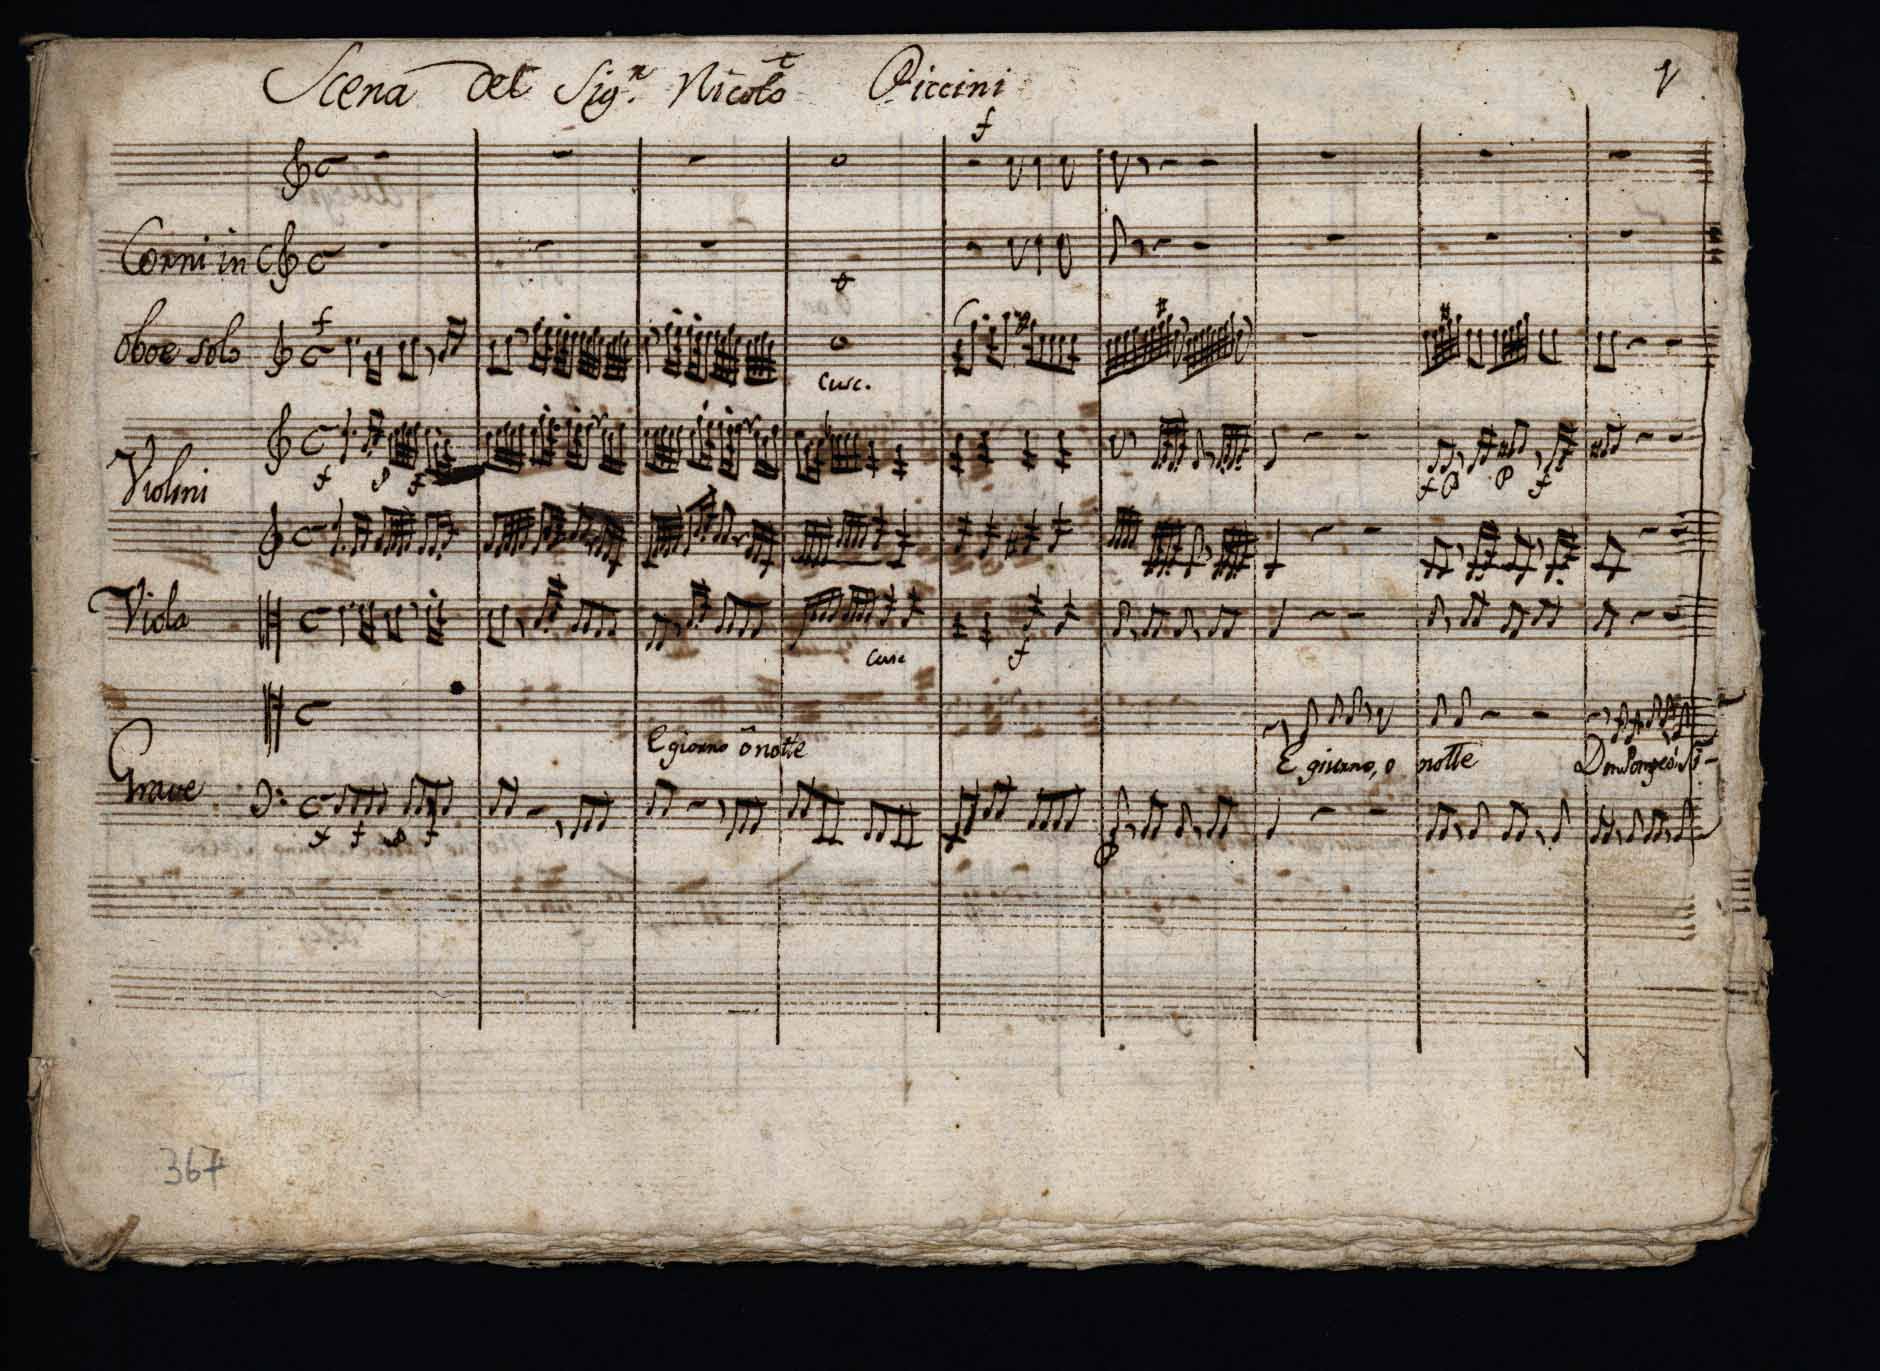 Scena del Sig.r Nicolò Piccini
f
Corni in C
f
oboe solo
cresc.
Violini
f p f
f p p f
Viola
cresc
f
E giorno ò notte
E giorno, o notte Don Pompeo
Grave
f f p f
p
367